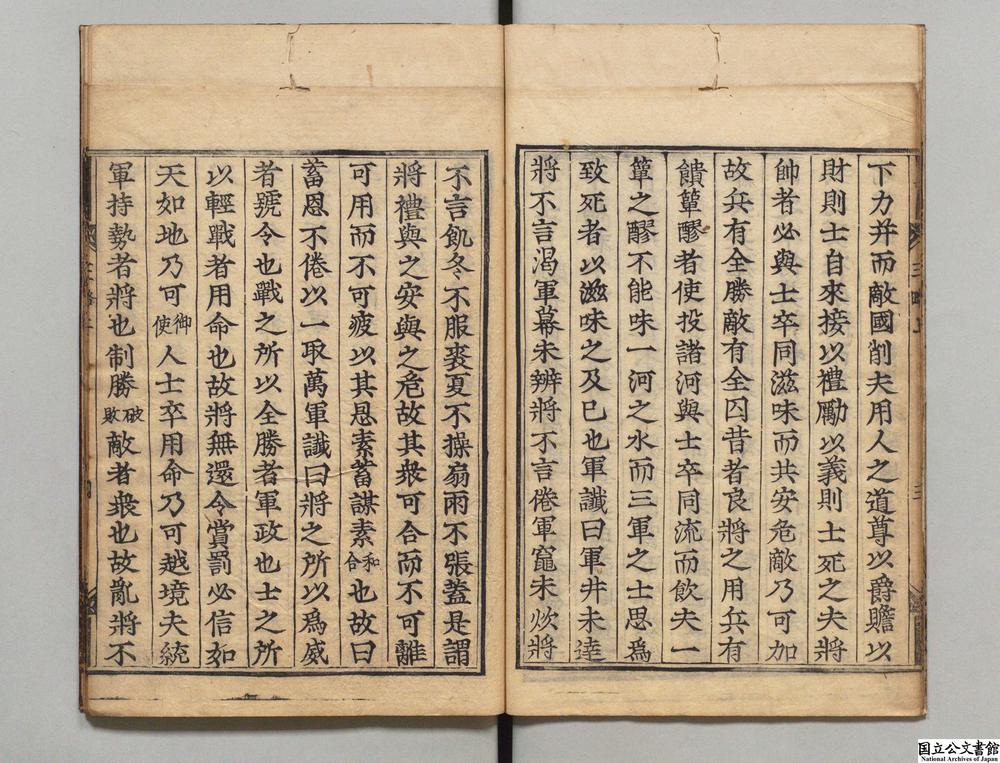 下力并而敵國削夫用人之道尊以爵贍以
財則士自來接以禮勵以義則士死之夫將
帥者必與士卒同滋味而共安危敵乃可加
故兵有全勝敵有全囚昔者良將之用兵有
饋簞醪者使投諸河與士卒同流而飲夫一
簞之醪不能味一河之水而三軍之士思爲
致死者以滋味之及已也軍讖曰軍井未達
將不言渴軍幕未辨將不言倦軍竈未炊將
不言飢冬不服裘夏不操扇雨不張蓋是謂
將禮與之安與之危故其衆可合而不可離
可用而不可疲以其恩素蓄謀素和合也故曰
蓄恩不倦以一取萬軍讖曰將之所以爲威
者號令也戰之所以全勝者軍政也士之所
以輕戰者用命也故將無還令賞罰必信如
天如地乃可御使人士卒用命乃可越境夫統
軍持勢者將也制勝破敗敵者衆也故亂將不
国立公文書館
National Archives of Japan